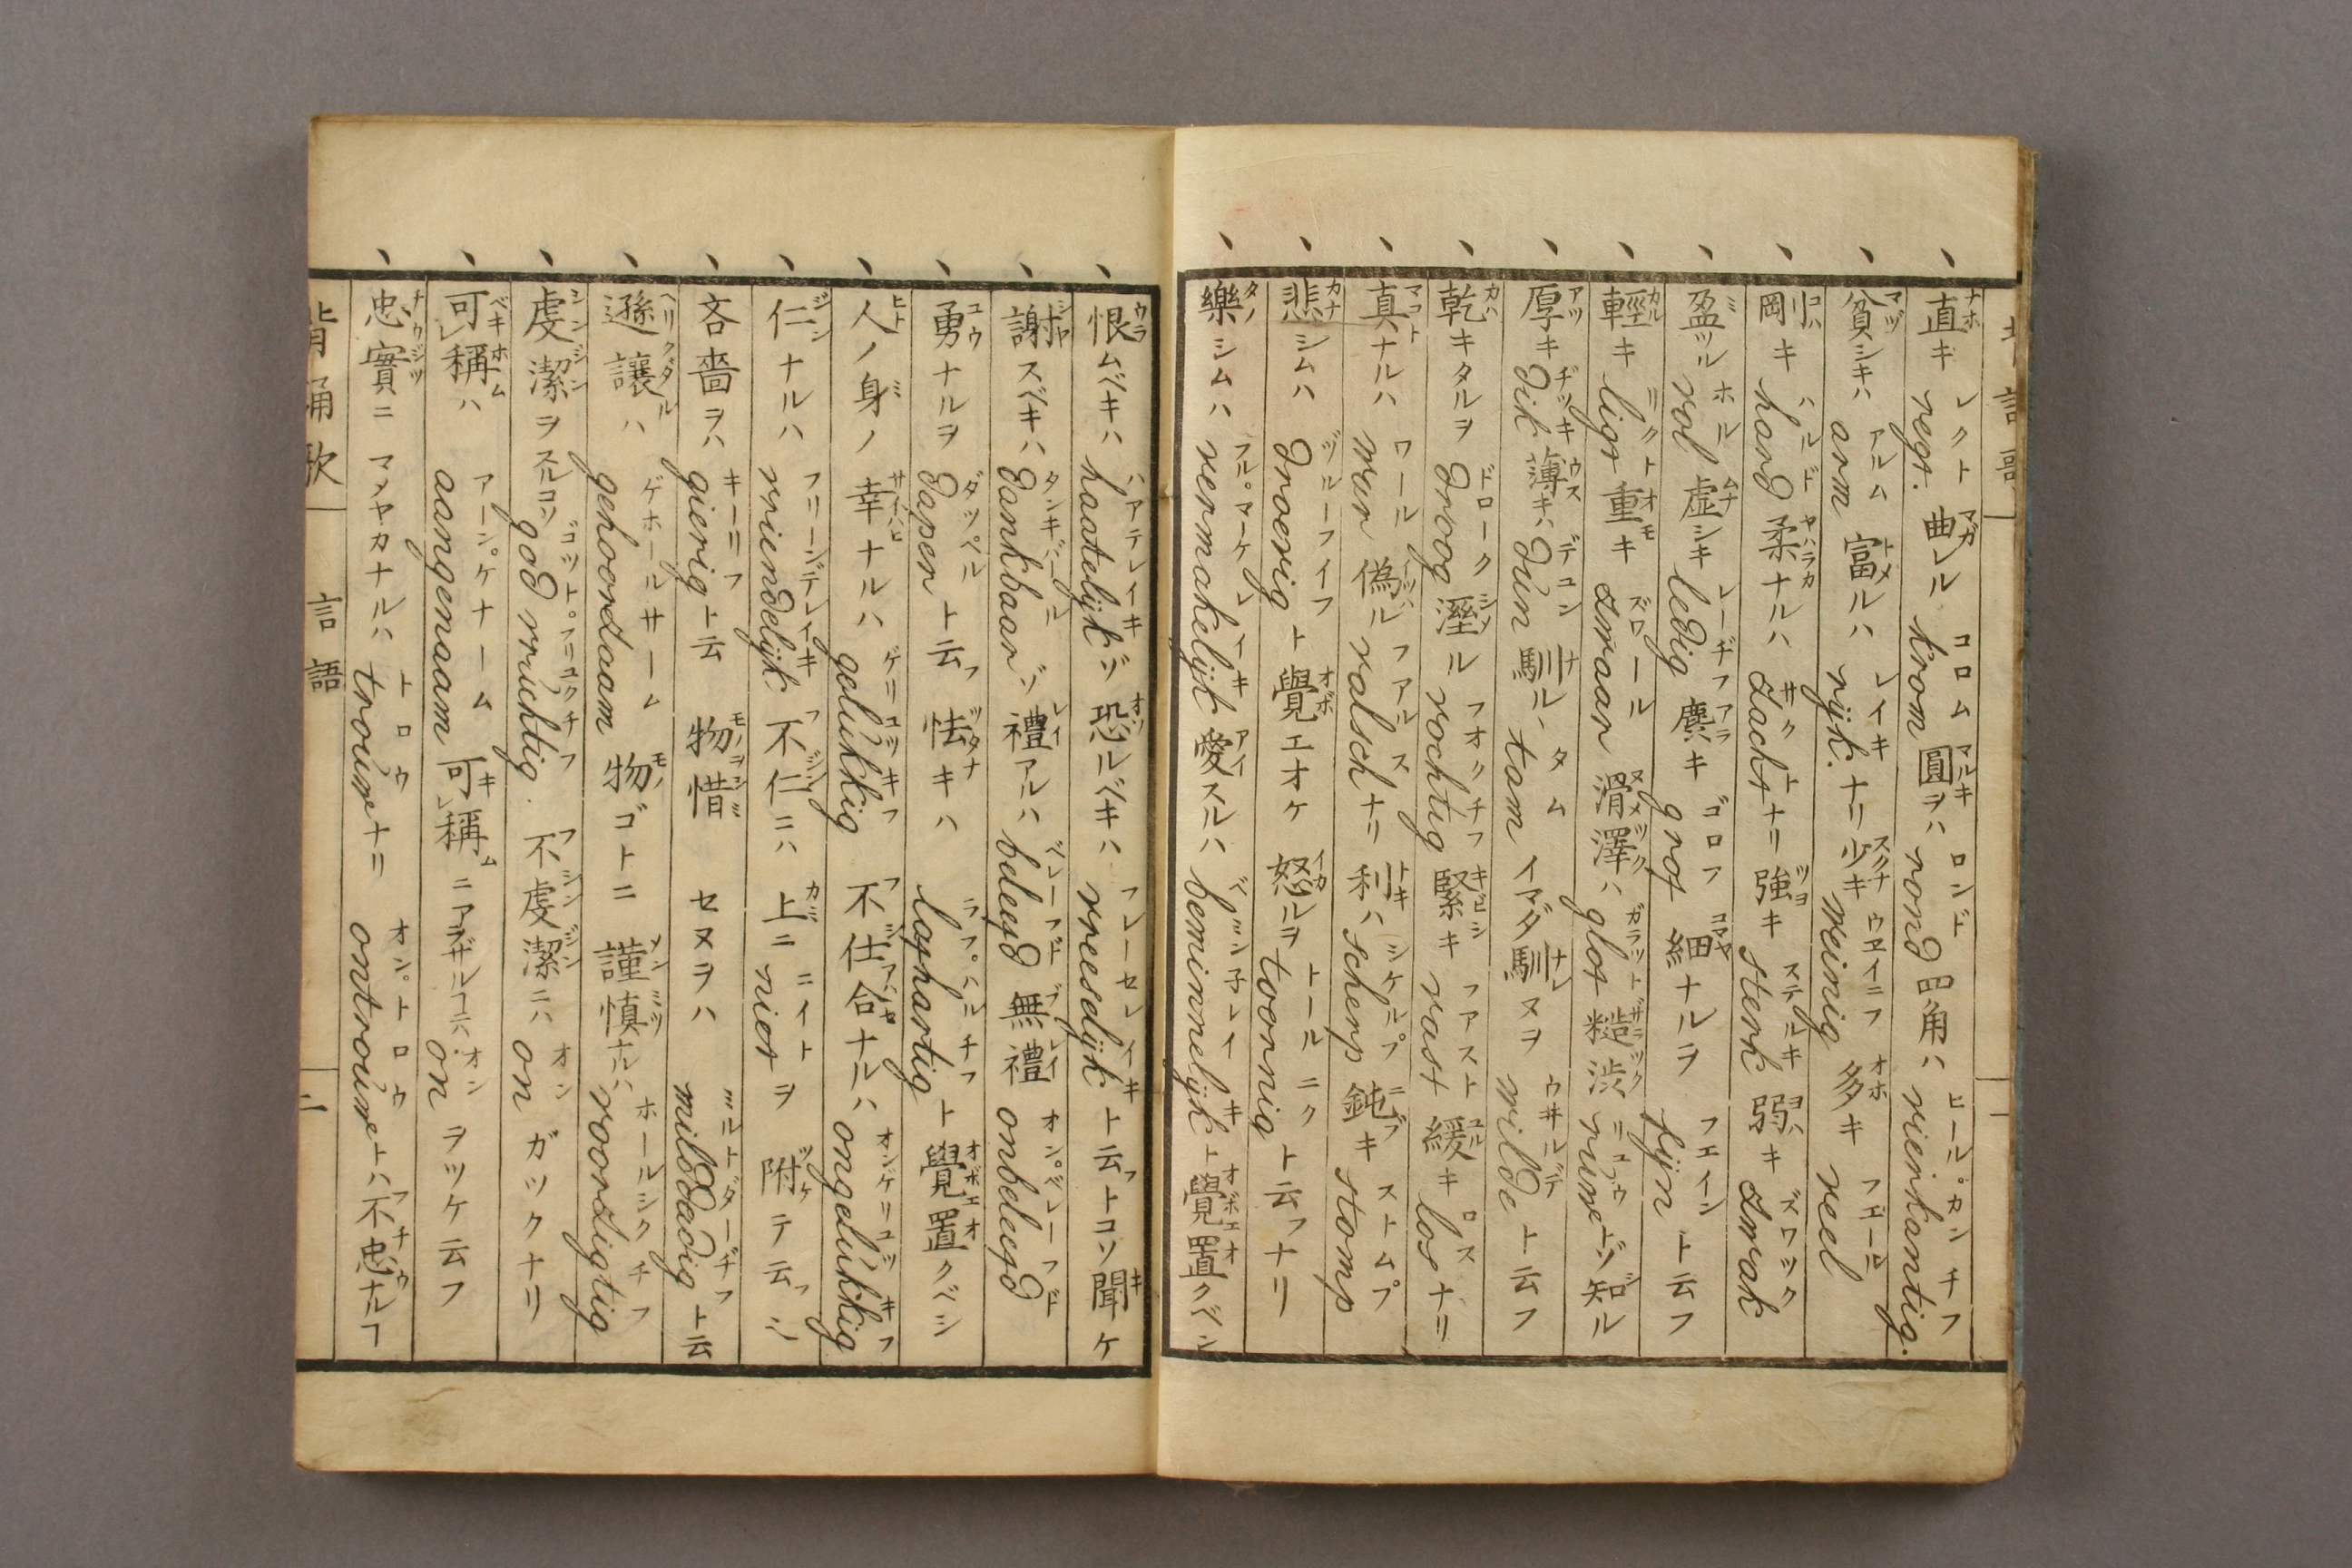 直キ regt. 曲レル krom 圓ヲハ rond 四角ハ vierkantig.
貧シキハ arm 富メルハ rijk. ナリ 少キ weinig 多キ veel
剛キ hard 柔ナルハ zacht ナリ 強キ sterk 弱キ zwak
盈ツル vol 虚シキ ledig 麁キ grof 細ナルヲ fijn ト云フ
輕キ ligt 重キ zwaar 滑澤ハ glat 糙渋 ruw ドゾ知ル
厚キ dik 薄キハ dun 馴ル丶 tam イマダ馴ヌヲ wilde ト云フ
乾キタルヲ droog 溼ル vochtig 緊キ vast 緩キ los ナリ
真ナルハ war 偽ル valsch ナリ 利ハ scherp 鈍キ stomp
悲シムハ droevig ト覺エオケ 怒ルヲ toornig ト云フナリ
樂シムハ vermakelijk 愛スルハ beminnelijk ト覺置クベシ
恨ムベキハ haatelijk ゾ 恐ルベキハ vreeselijk ト云フトコソ聞ケ
謝スベキハ dankbaar ゾ 禮アルハ beleefd 無禮 onbeleefd
勇ナルヲ dapper ト云フ 怯キハ lafhartig ト覺置クベシ
人ノ身ノ幸ナルハ gelukkig 不仕合ナルハ ongelukkig
仁ナルハ vriendelijk 不仁ニハ上ニ niet ヲ附テ云フゾ
吝嗇ヲハ gierig ト云 物惜セヌヲハ milddadig ト云
遜讓ハ gehoorzaam 物ゴトニ謹慎ナルハ voorzigtig
虔潔ヲスルコソ godvruchtig. 不虔潔ニハ on ガツクナリ
可稱ハ aangenaam 可稱ニアラザルニハ on ヲツケ云フ
忠實ニマヤカナルハ trouw ナリ ontrouw トハ不忠ナルフ
背誦歌 言語 二